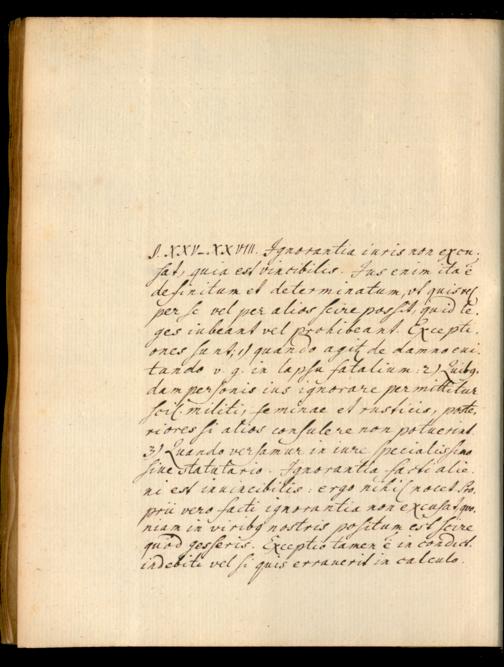 §. XXV–XXVIII. Ignorantia iuris non excu-
sat, quia est vincibilis. Jus enim ita ē
definitum et determinatum, vt quisq
per se vel per alios scire possit, quid le-
ges iubeant vel prohibeant. Excepti-
ones sunt, 1) quando agit de damno evi-
tando v. g. in lapsu fatalium: 2) Quibq-
dam personis ius ignorare permittitur
scil. militi, feminae et rusticis, poste-
riores si alios consulere non potuerint
3) Quando versamur in iure specialissimo
sive statutario. Ignorantia facti alie-
ni est invincibilis: ergo nihil nocet. Pro-
prii vero facti ignorantia non excusat, quo-
niam in viribq nostris positum est, scire
quod gesseris. Exceptio tamen ē in condict.
indebiti vel si quis erraverit in calculo.